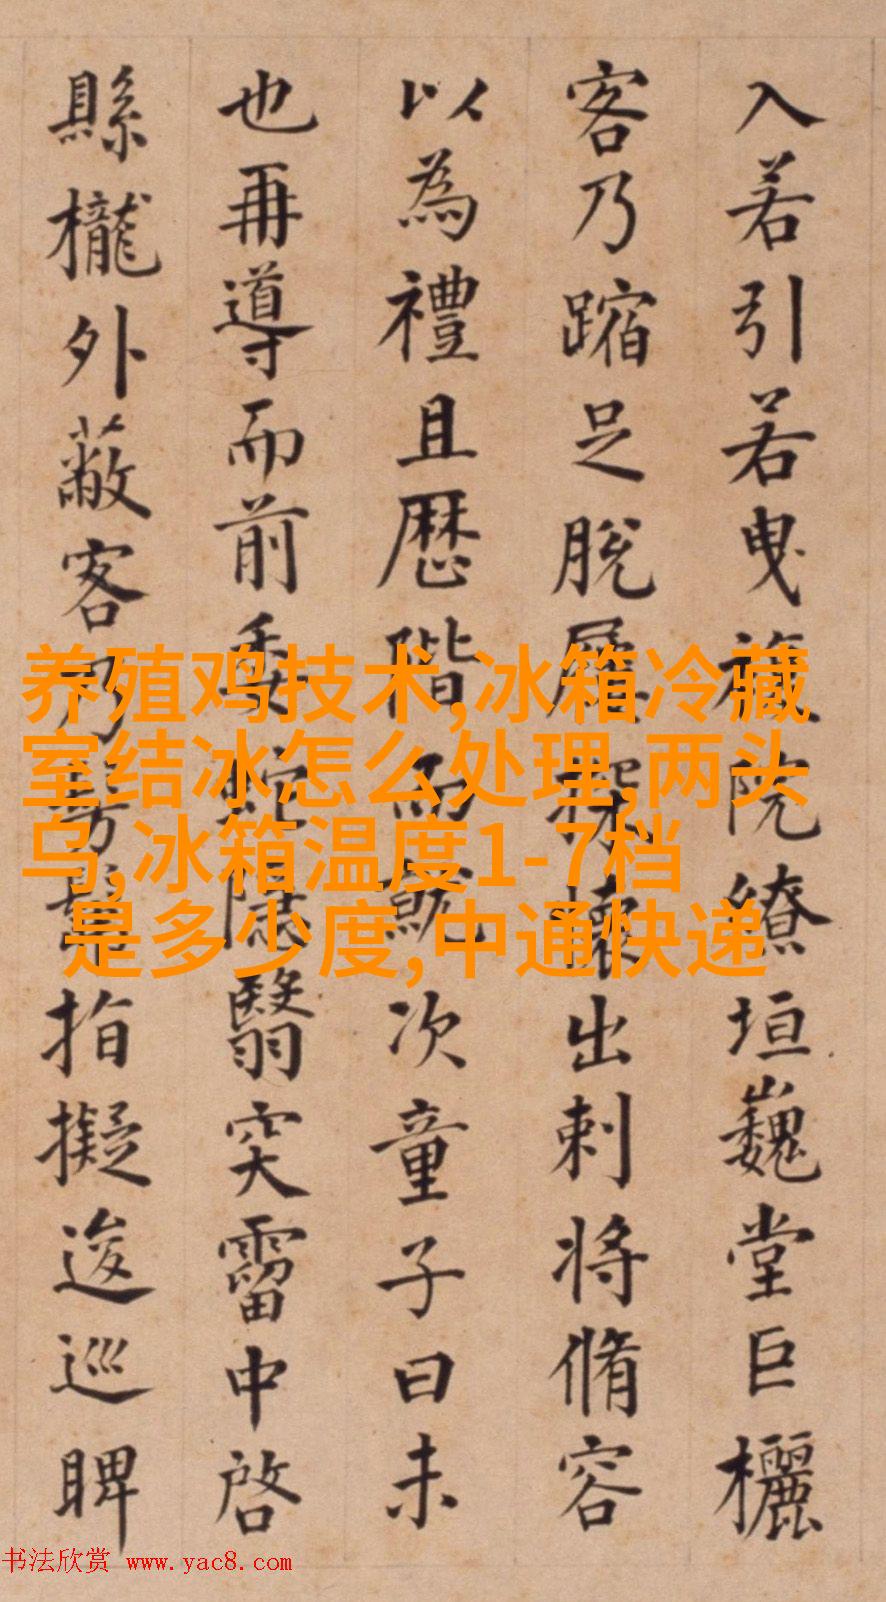 入若引若曳旋院繚垣巍堂巨欐
客乃蹜足脫屨攝懷出刺將脩容
以為禮且歷階而就次童子曰未
也再導而前委蛇隱翳穾霤中啓
縣櫳外蔽客乃髣髴指擬逡巡睥
养殖鸡技术,冰箱冷藏
室结冰怎么处理,两头
乌,冰箱温度1-7档
是多少度,中通快递
书法欣赏 www.yac8.com